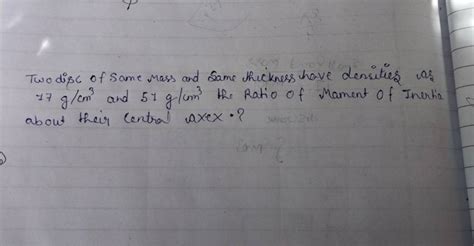 Two disc of Same Mass and Same thickness have densities as
17 g/cm³ and 51 g/cm³ the Ratio of Mament Of Inertia
about their Central axex .?